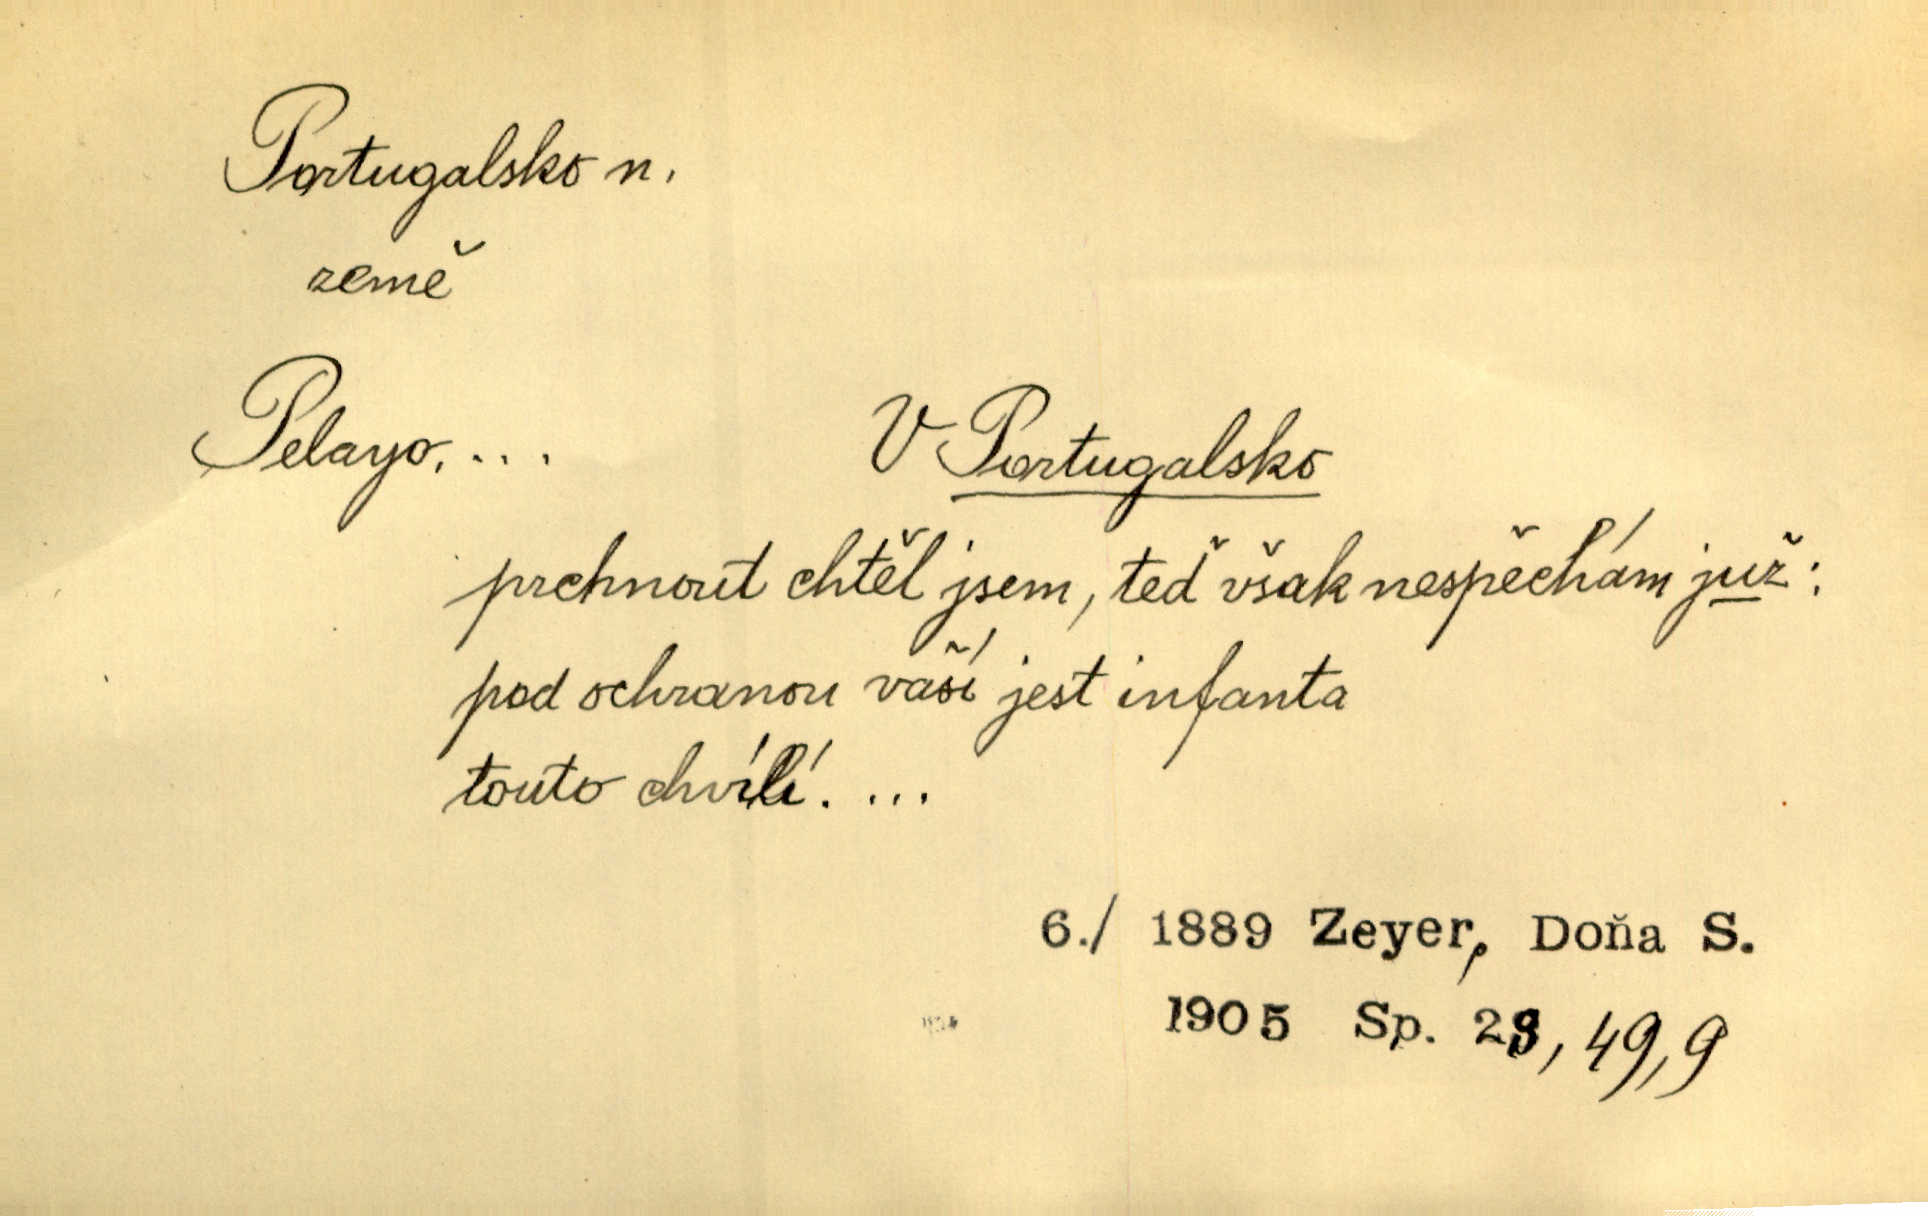 Portugalsko n.
země
Pelayo. ... V Portugalsko
prchnout chtěl jsem, teď však nespěchám již:
pod ochranou vaší jest infanta
touto chvílí. ...
6./ 1889 Zeyer, Doňa S.
1905 Sp. 28, 49, 9